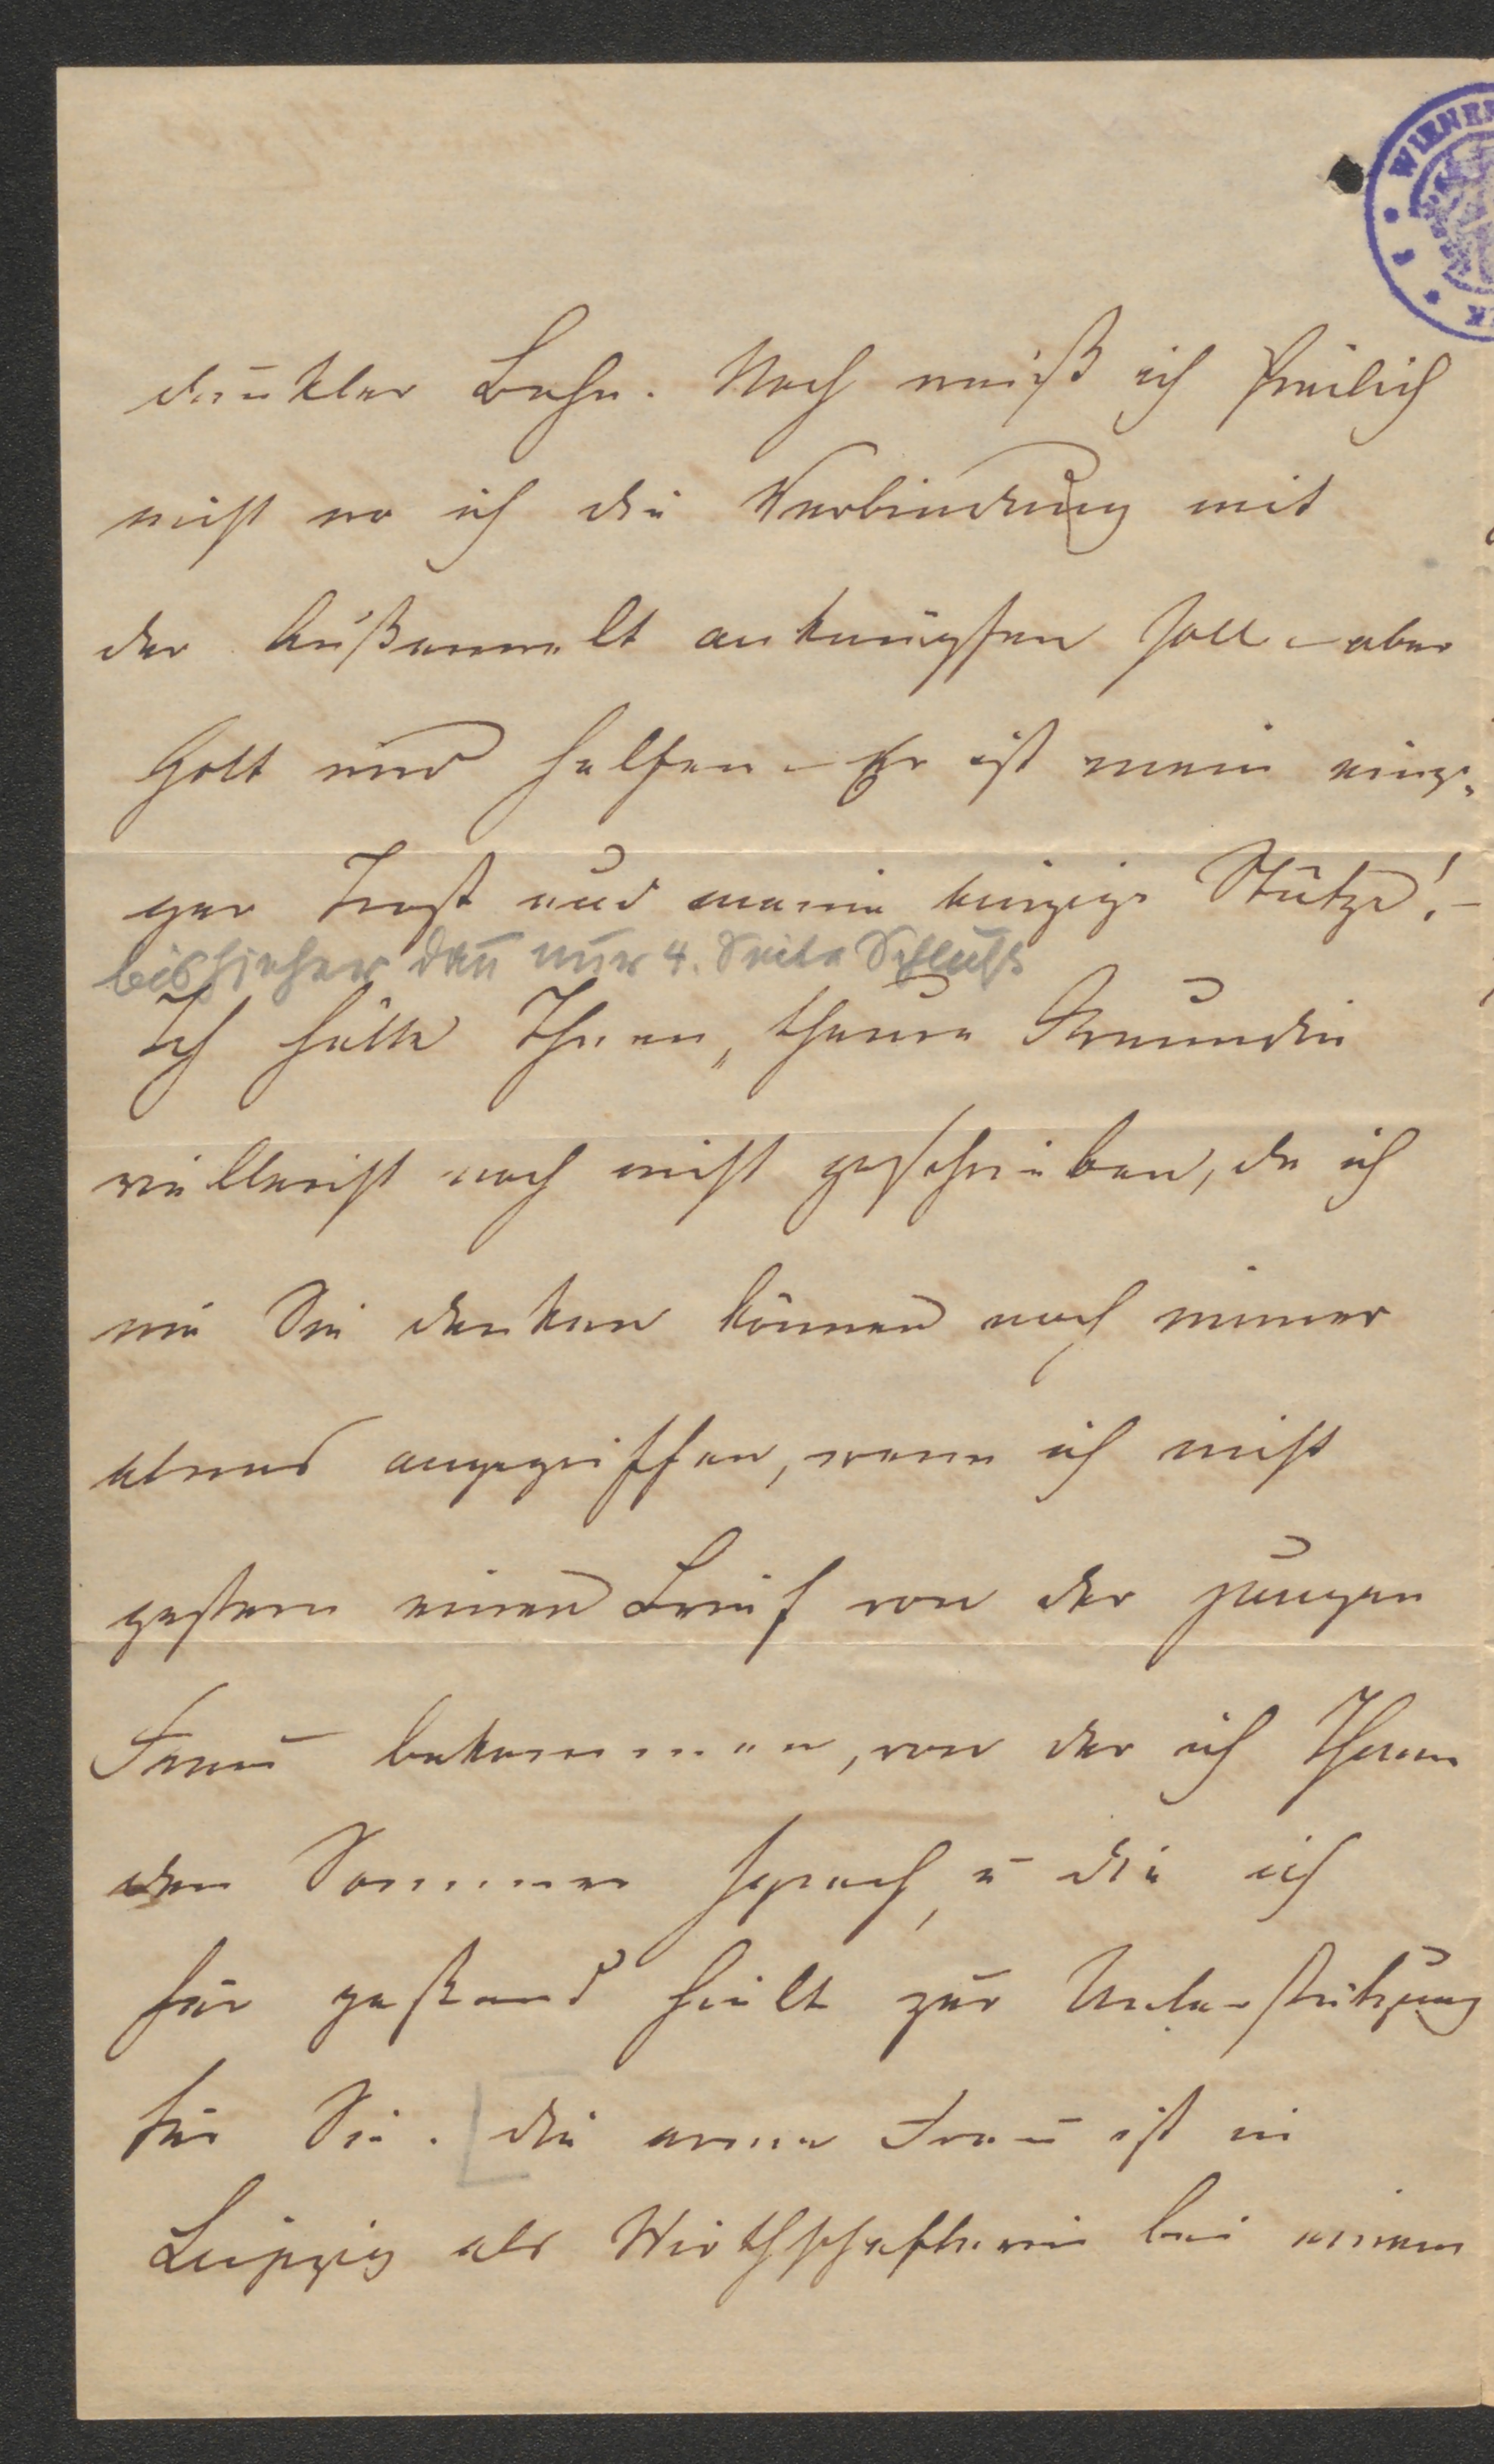 WIENER
dunkler Bahn. Noch weiß ich freilich
nicht wo ich die Verbindung mit
der Außenwelt anknüpfen soll – aber
Gott wird helfen – Er ist mein einzi-
ger Trost und meine einzige Stütze! –
bis hieher dañ nur 4. Seite Schluß
Ich hätte Ihnen, theure Freundin
vielleicht noch nicht geschrieben, da ich
wie Sie denken können noch immer
etwas angegriffen, wenn ich nicht
gestern einen Brief von der jungen
Frau bekommen, von der ich Ihnen
den Sommer sprach, u die ich
für passend hielt zur Unterstützung
für Sie. die arme Frau ist in
Leipzig als Wirthschafterin bei einem